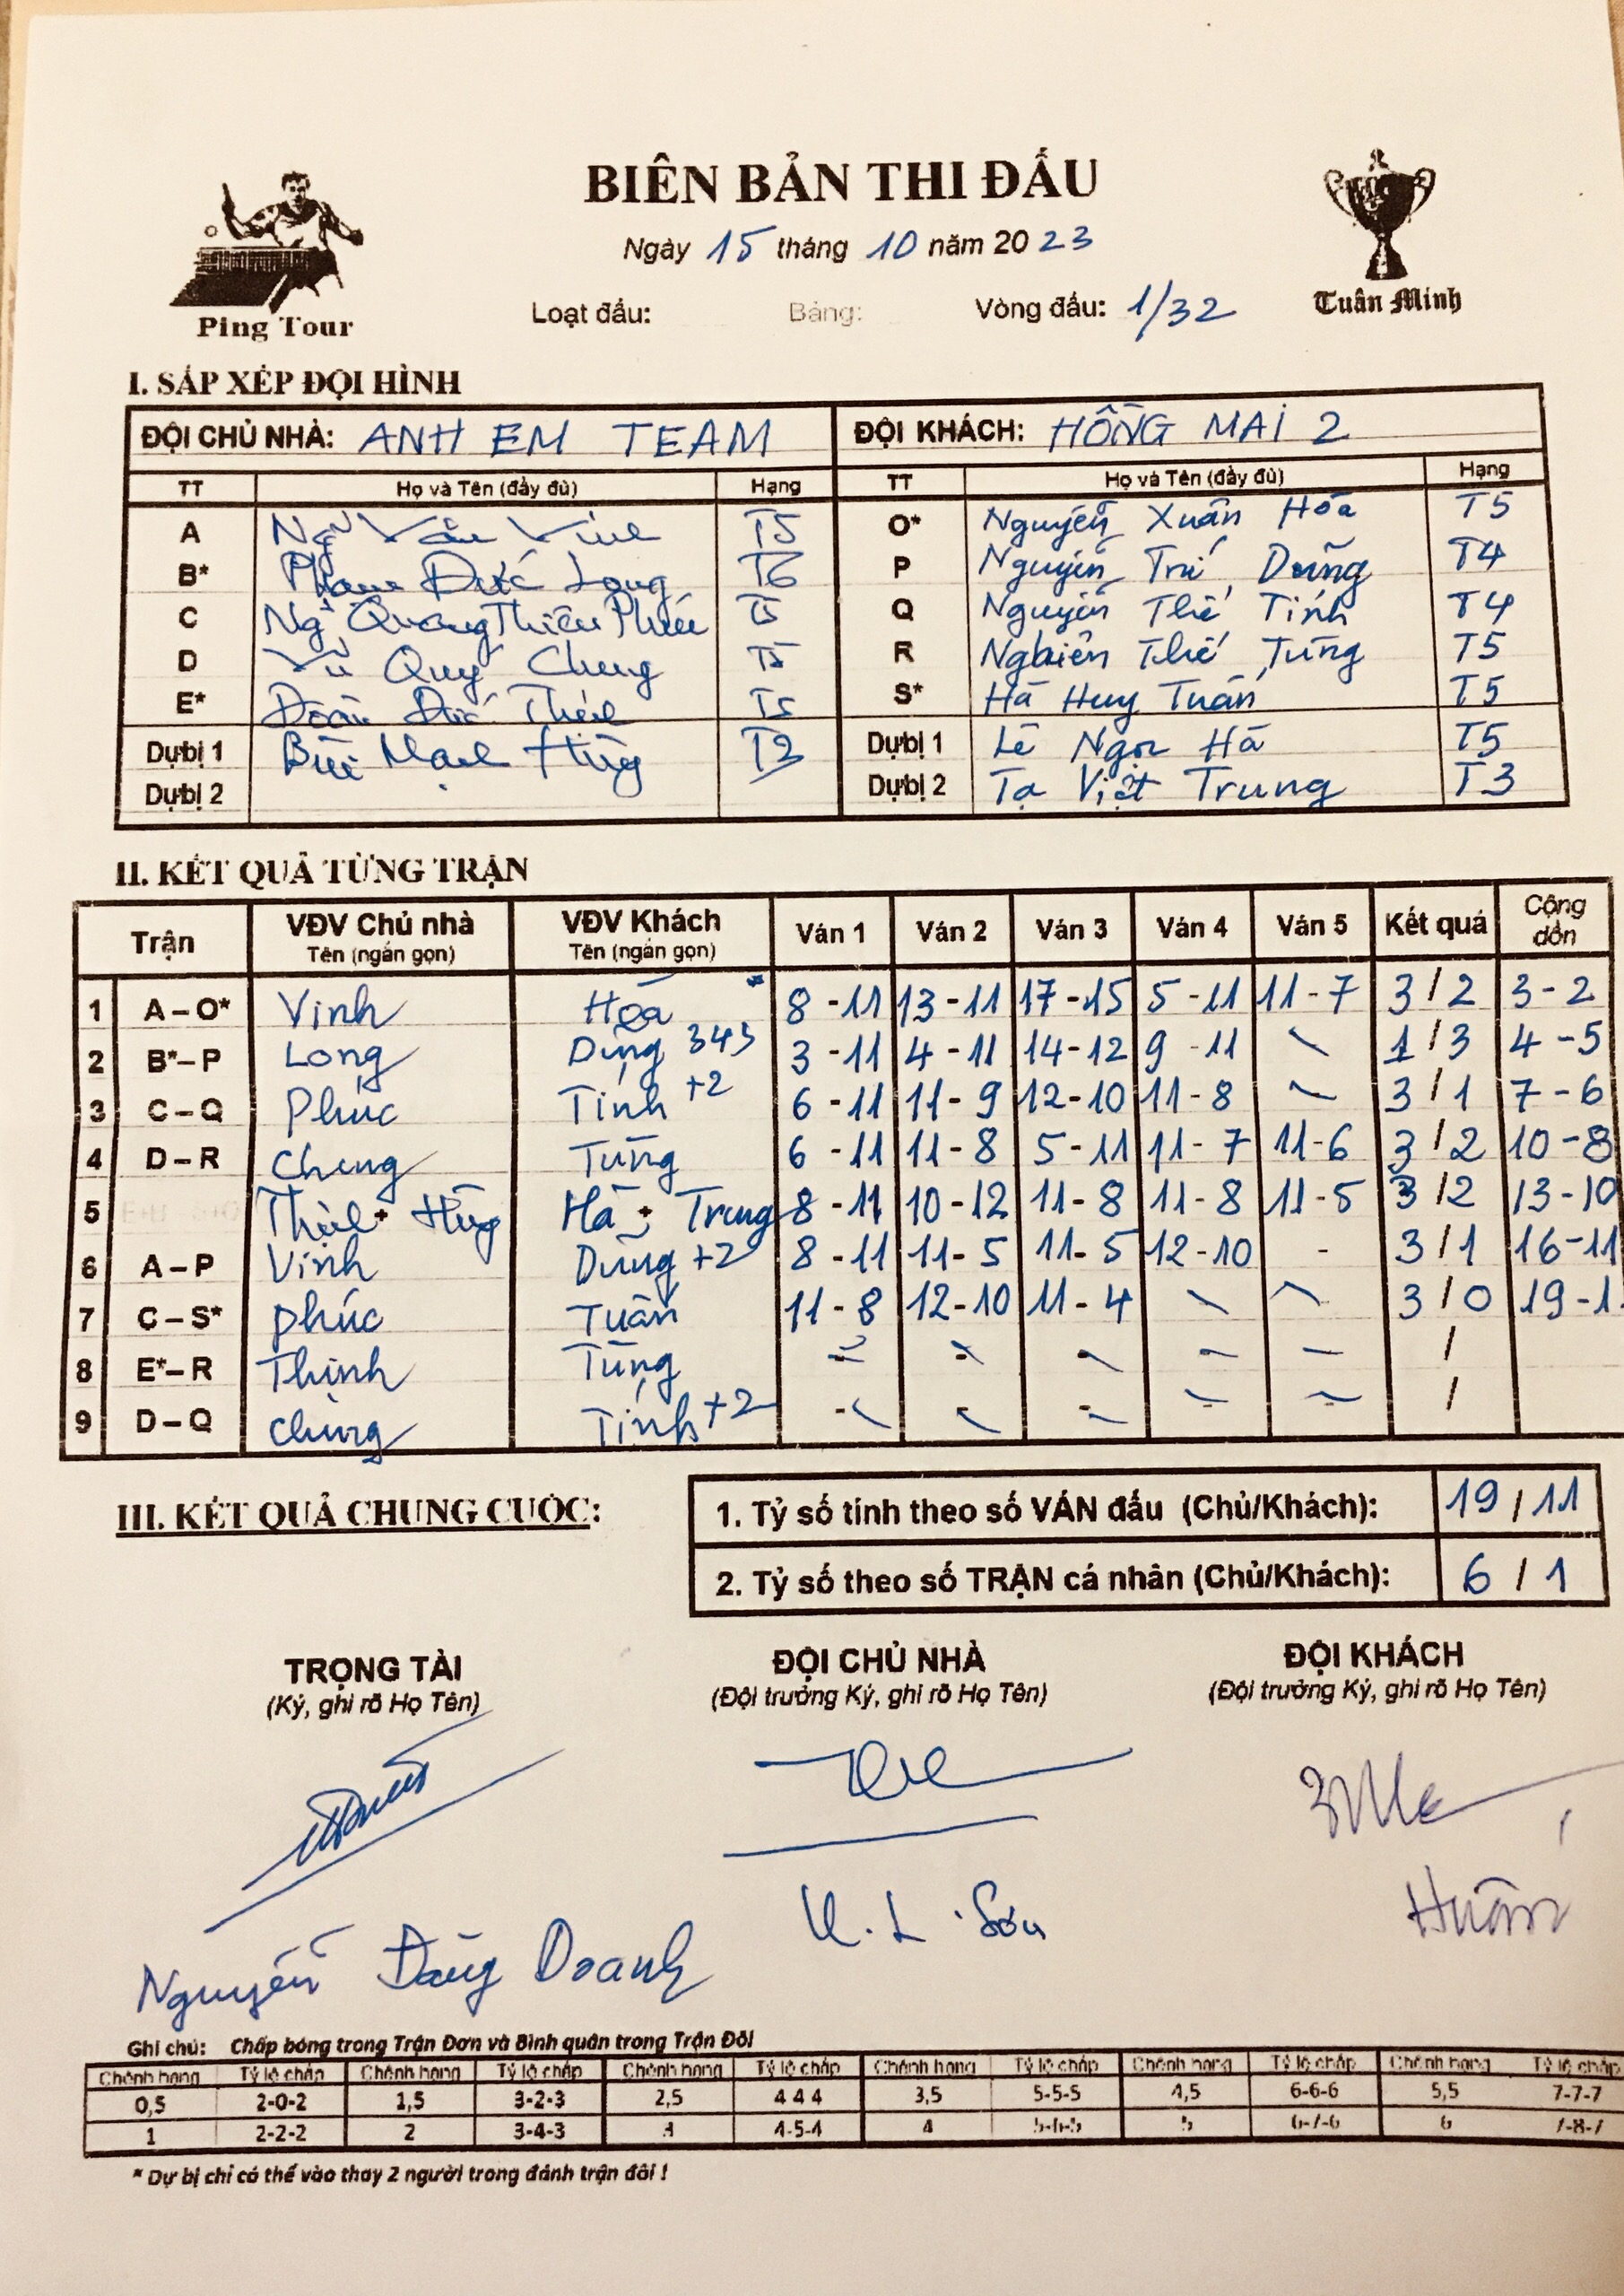 BIÊN BẢN THI ĐẤU
Ngày 15 tháng 10 năm 2023
Ping Tour
Tuân Minh
Loạt đấu: Bảng: Vòng đấu: 1/32
I. SẮP XẾP ĐỘI HÌNH
ĐỘI CHỦ NHÀ: ANH EM TEAM ĐỘI KHÁCH: HỒNG MAI 2
TT Họ và Tên (đầy đủ) Hạng TT Họ và Tên (đầy đủ) Hạng
A Ng Văn Vinh T5 O* Nguyễn Xuân Hóa T5
B* Phạm Đức Long T6 P Nguyễn Trí Dũng T4
C Ng Quang Thiều Phúc T5 Q Nguyễn Thế Tính T4
D Vũ Quý Chung T5 R Nghiêm Thế Tùng T5
E* Đoàn Đức Thịnh T5 S* Hà Huy Tuấn T5
Dự bị 1 Bùi Mạnh Hùng T3 Dự bị 1 Lê Ngọc Hà T5
Dự bị 2 Dự bị 2 Tạ Việt Trung T3
II. KẾT QUẢ TỪNG TRẬN
Trận VĐV Chủ nhà VĐV Khách Ván 1 Ván 2 Ván 3 Ván 4 Ván 5 Kết quả Cộng dồn
Tên (ngắn gọn) Tên (ngắn gọn)
1 A – O* Vinh Hóa 8 - 11 13 - 11 17 - 15 5 - 11 11 - 7 3 / 2 3 - 2
2 B* – P Long Dũng 343 3 - 11 4 - 11 14 - 12 9 - 11 1 / 3 4 - 5
3 C – Q Phúc Tính +2 6 - 11 11 - 9 12 - 10 11 - 8 3 / 1 7 - 6
4 D – R Chung Tùng 6 - 11 11 - 8 5 - 11 11 - 7 11 - 6 3 / 2 10 - 8
5 Thịnh + Hùng Hà + Trung 8 - 11 10 - 12 11 - 8 11 - 8 11 - 5 3 / 2 13 - 10
6 A – P Vinh Dũng +2 8 - 11 11 - 5 11 - 5 12 - 10 - 3 / 1 16 - 11
7 C – S* phúc Tuấn 11 - 8 12 - 10 11 - 4 3 / 0 19 - 1
8 E* – R Thịnh Tùng - - - - - /
9 D – Q Chung Tính +2 - - - - - /
III. KẾT QUẢ CHUNG CUỘC:
1. Tỷ số tính theo số VÁN đấu (Chủ/Khách): 19 / 11
2. Tỷ số theo số TRẬN cá nhân (Chủ/Khách): 6 / 1
TRỌNG TÀI ĐỘI CHỦ NHÀ ĐỘI KHÁCH
(Ký, ghi rõ Họ Tên) (Đội trưởng Ký, ghi rõ Họ Tên) (Đội trưởng Ký, ghi rõ Họ Tên)
Nguyễn Đăng Doanh Sơn Huân
Ghi chú: Chấp bóng trong Trận Đơn và Bình quân trong Trận Đôi
Chênh hạng Tỷ lệ chấp Chênh hạng Tỷ lệ chấp Chênh hạng Tỷ lệ chấp Chênh hạng Tỷ lệ chấp Chênh hạng Tỷ lệ chấp Chênh hạng Tỷ lệ chấp
0,5 2-0-2 1,5 3-2-3 2,5 4 4 4 3,5 5-5-5 4,5 6-6-6 5,5 7-7-7
1 2-2-2 2 3-4-3 3 4-5-4 4 5-6-5 5 6-7-6 6 7-8-7
* Dự bị chỉ có thể vào thay 2 người trong đánh trận đôi !